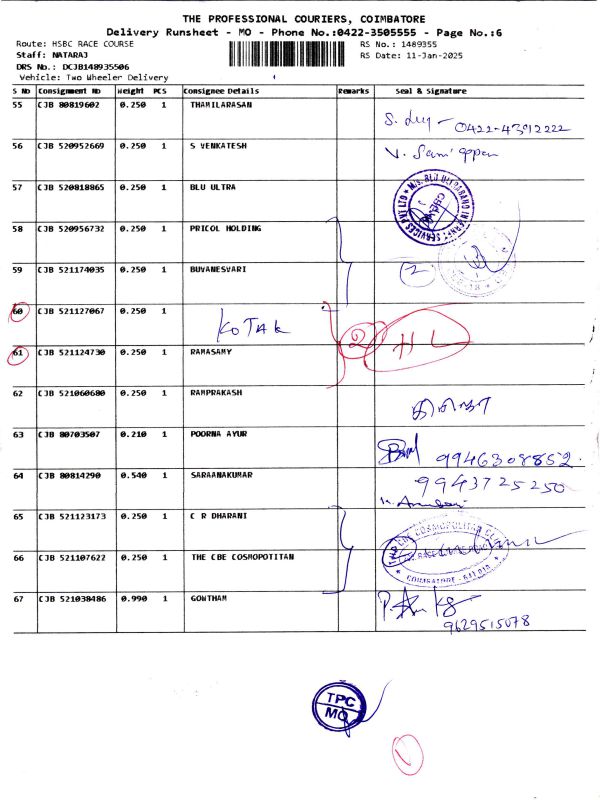 THE PROFESSIONAL COURIERS, COIMBATORE
Delivery Runsheet - MO - Phone No.:0422-3505555 - Page No.:6
Route: HSBC RACE COURSE RS No.: 1489355
Staff: NATARAJ RS Date: 11-Jan-2025
DRS No.: DCJB148935506
Vehicle: Two Wheeler Delivery
S No Consignment No Weight PCS Consignee Details Remarks Seal & Signature
55 CJB 80819602 0.250 1 THAMILARASAN
0422-4392222
56 CJB 520952669 0.250 1 S VENKATESH
57 CJB 520818865 0.250 1 BLU ULTRA
58 CJB 520956732 0.250 1 PRICOL HOLDING
59 CJB 521174035 0.250 1 BUVANESVARI 2
60 CJB 521127067 0.250 1 KOTAK
2 HL
61 CJB 521124730 0.250 1 RAMASAMY
62 CJB 521060680 0.250 1 RAMPRAKASH
63 CJB 80703507 0.210 1 POORNA AYUR
9946308852
64 CJB 80814290 0.540 1 SARAANAKUMAR 9943725250
65 CJB 521123173 0.250 1 C R DHARANI
COSMOPOLITAN CLUB
66 CJB 521107622 0.250 1 THE CBE COSMOPOTITAN
COIMBATORE
67 CJB 521038486 0.990 1 GOWTHAM
9629515078
TPC
MO